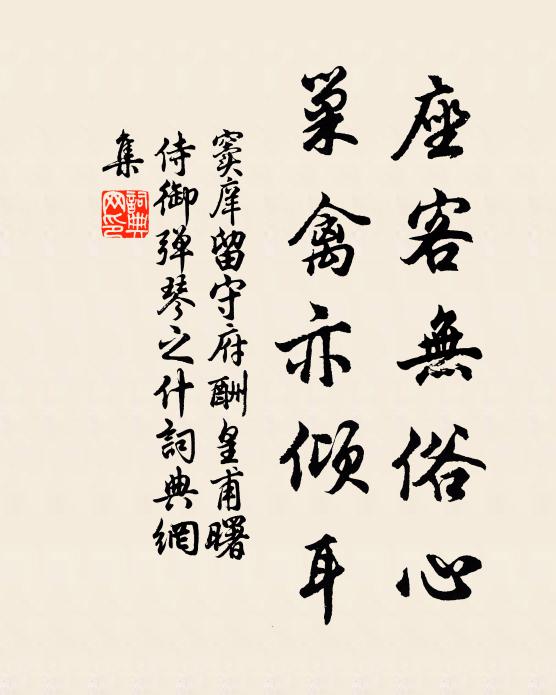 座客無俗心
巢禽亦倾耳
窦庠留守府酬皇甫曙
侍御弹琴之什詞典網
集
詞典
网印